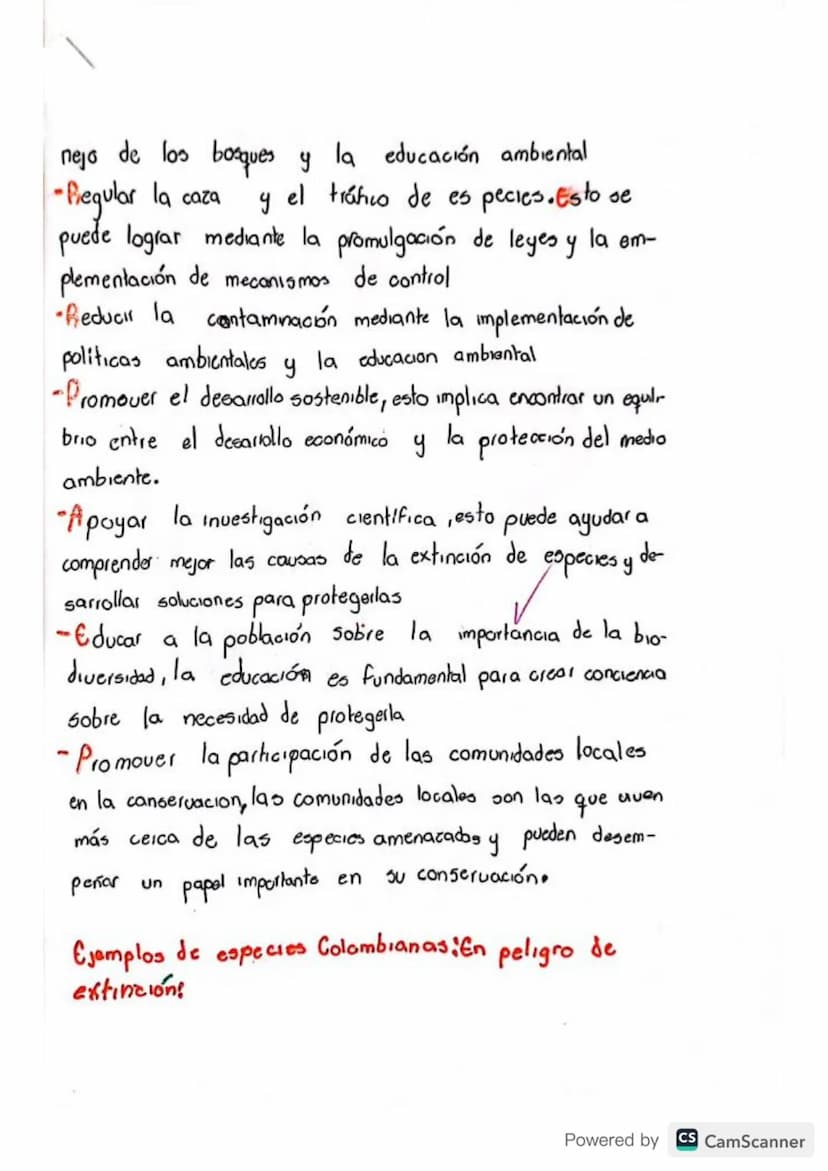 nejo de los bosques y la educación ambiental
-Regular la caza y el tráfico de es pecies. Esto se
puede lograr mediante la promulgación de leyes y la em-
plementación de mecanismos de control
-Reducir la contamnación mediante la implementación de
políticas ambientales y la educacion ambiental
-Promover el desarrollo sostenible, esto implica encontrar un equili-
brio entre el desarrollo económico y la protección del medio
ambiente.
-Apoyar la investigación científica, esto puede ayudar a
comprender mejor las causas de la extinción de especies y de-
sarrollar soluciones para protegerlas
-Educar a la población sobre la importancia de la bio-
diversidad, la educación es fundamental para crear conciencia
sobre la necesidad de protegerla
- Promover la participación de las comunidades locales
en la conservacion, las comunidades locales son las que viven
más cerca de las especies amenazadas y pueden desem-
peñar un papel importante en su conservación.
Ejemplos de especies Colombianas: En peligro de
extinción:
Powered by CS CamScanner